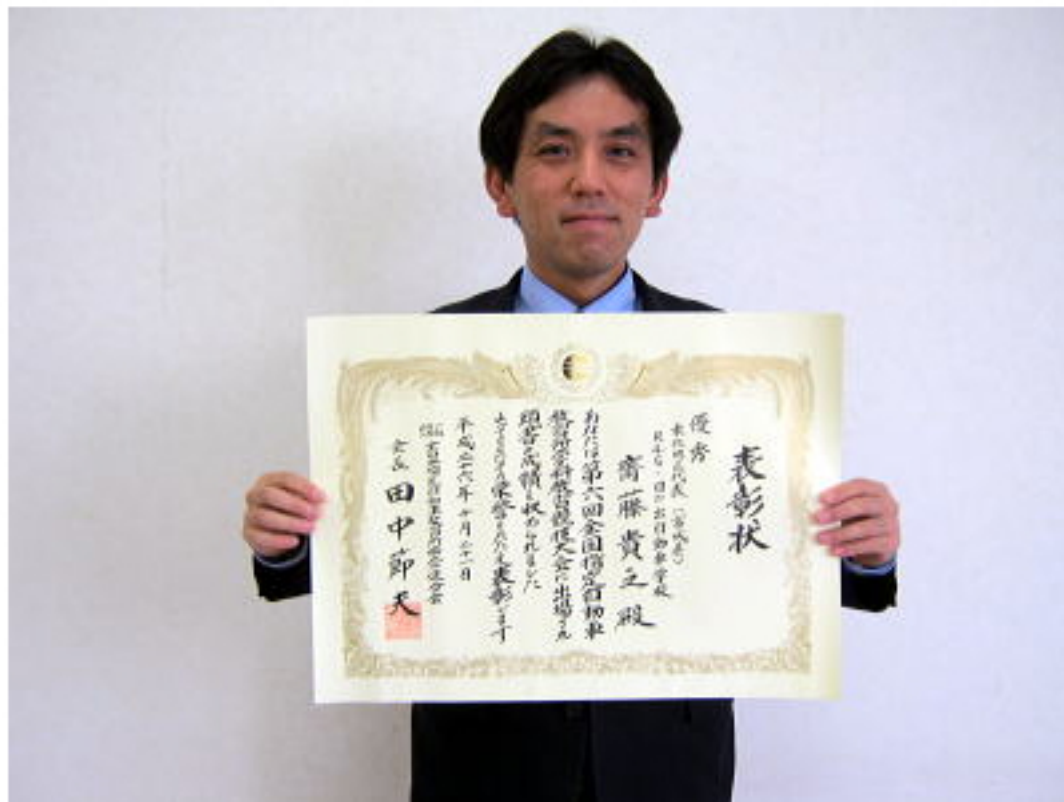 表彰状
優秀
東北地区代表（宮城県）
日の出自動車学校
齋藤貴之殿
あなたは第六回全国指定自動車
教習所学科教習競技大会に出場され
頭書の成績を収められました
よってここにその栄誉をたたえ表彰します
平成二十六年十月二十一日
会長 田中節夫